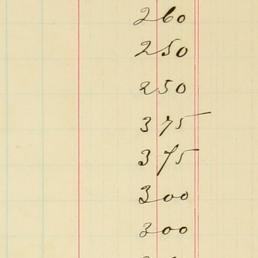 260
250
250
375
375
300
300